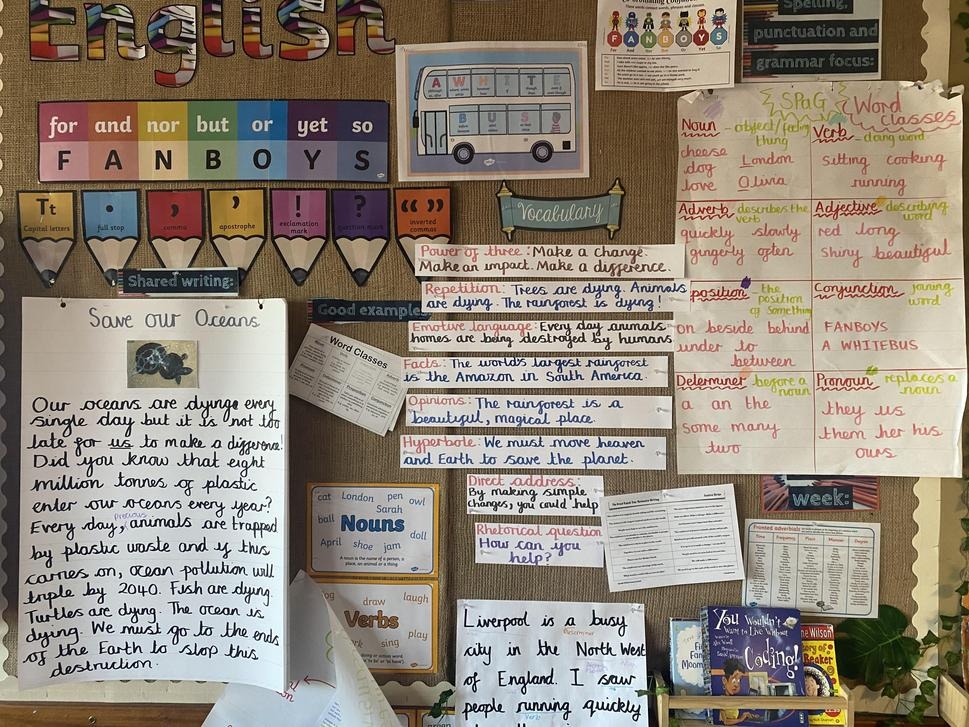 English
for and nor but or yet so
F A N B O Y S
Tt
Capital letters
full stop
comma
apostrophe
!
exclamation mark
?
question mark
inverted commas
Shared writing:
Save our Oceans
Our oceans are dying every
single day but it is not too
late for us to make a difference!
Did you know that eight
million tonnes of plastic
enter our oceans every year?
precious
Every day, animals are trapped
by plastic waste and if this
carries on, ocean pollution will
triple by 2040. Fish are dying.
Turtles are dying. The ocean is
dying. We must go to the ends
of the Earth to stop this
destruction.
A WHITE
BUS
FANBOYS
Spelling,
punctuation and
grammar focus:
Vocabulary
Power of three: Make a change.
Make an impact. Make a difference.
Repetition: Trees are dying. Animals
are dying. The rainforest is dying!
Good example
Emotive language: Every day animals
homes are being destroyed by humans
Facts: The world's largest rainforest
is the Amazon in South America.
Opinions: The rainforest is a
beautiful, magical place.
Hyperbole: We must move heaven
and Earth to save the planet.
Direct address:
By making simple
changes, you could help
Rhetorical question
How can you
help?
Word Classes
cat London pen owl
Sarah
ball Nouns doll
April shoe jam
A noun is the name of a person, a
place, an animal or a thing.
draw laugh
Verbs
play
sing
Liverpool is a busy
determiner
city in the North West
of England. I saw
people running quickly
verb
SPaG Word classes
Noun - object/feeling
thing
cheese
dog London
love Olivia
Verb - doing word
sitting cooking
running
Adverb describes the
verb
quickly slowly
gingerly often
Adjective describing
word
red long
shiny beautiful
position - the
position
of something
on beside behind
under to
between
Conjunction joining
word
FANBOYS
A WHITEBUS
Determiner before a
noun
a an the
some many
two
Pronoun replaces a
noun
they us
them her his
ours
week:
Fronted adverbials
Time Frequency Place Manner Degree
You Wouldn't
Want to Live Without
Coding!